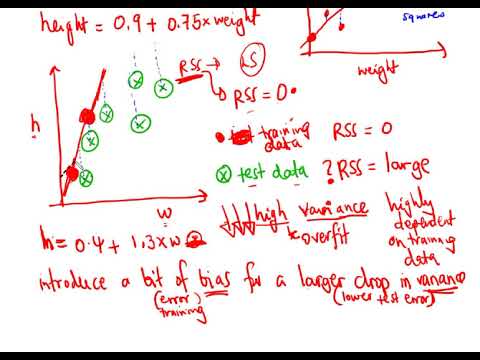 height = 0.9 + 0.75 x weight
squares
weight
RSS → LS
RSS = 0
h
training data RSS = 0
test data ? RSS = large
w
high variance
overfit
highly dependent on training data
h = 0.4 + 1.3 x w
introduce a bit of bias for a larger drop in variance
(error) training
(lower test error)